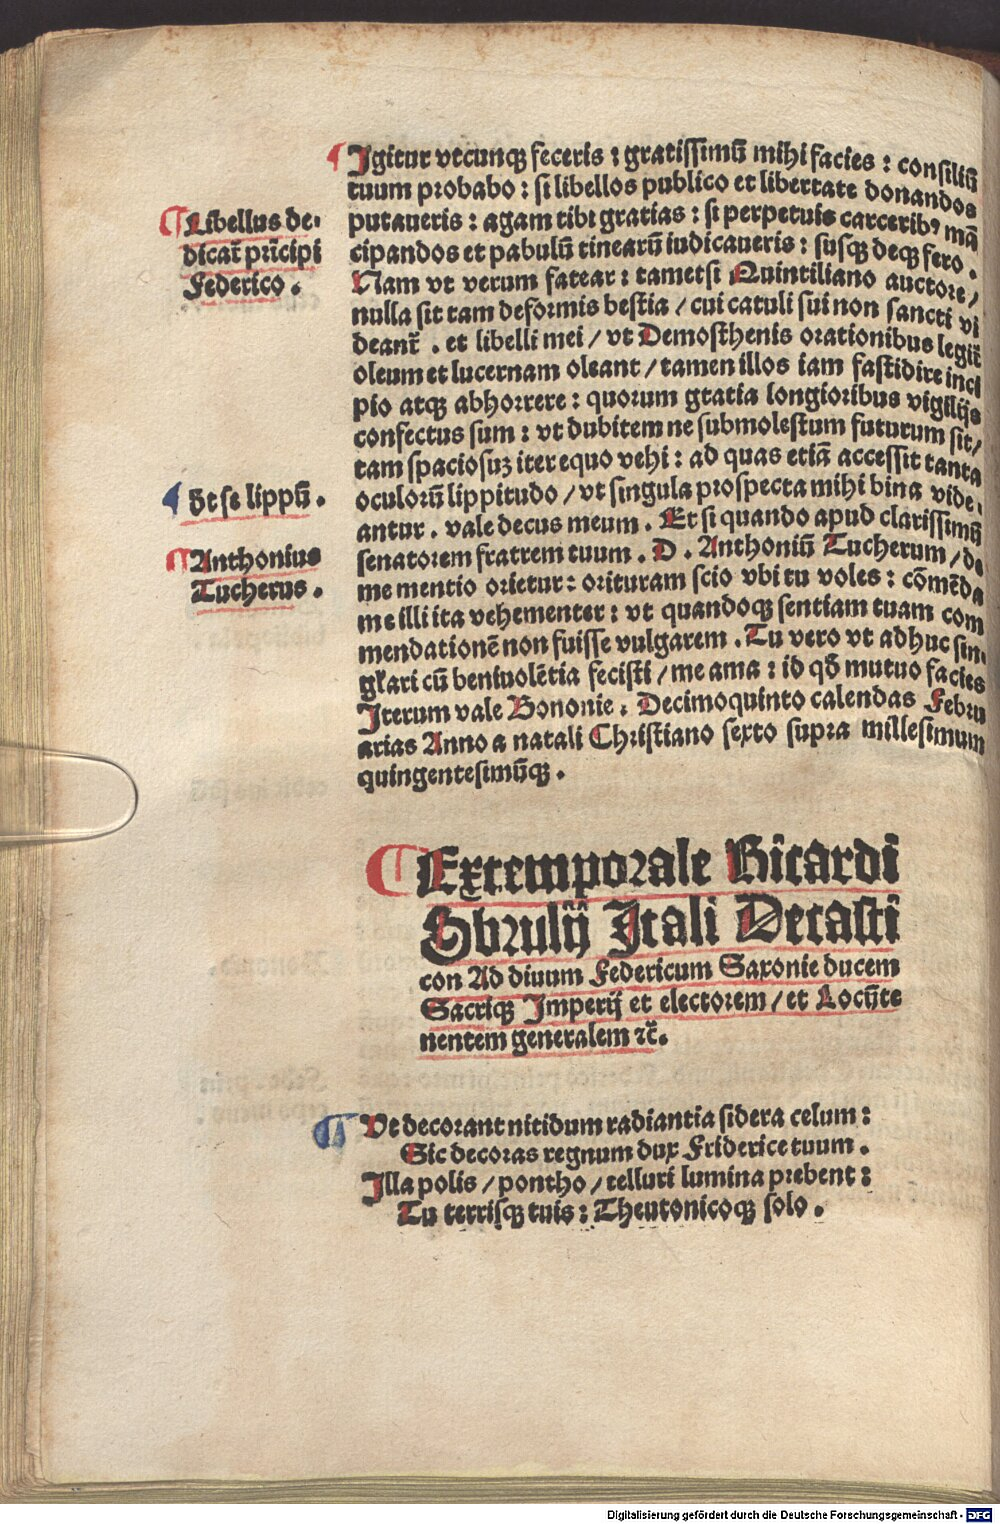 Igitur vtcunqꝫ feceris : gratissimū mihi facies : consiliū
tuum probabo : si libellos publico et libertate donandos
putaueris : agam tibi gratias : si perpetuis carceribꝰ mā
cipandos et pabulū tinearū iudicaueris : susqꝫ deqꝫ fero .
Nam vt verum fatear : tametsi Quintiliano auctore /
nulla sit tam deformis bestia / cui catuli sui non sancti vi
deant᷑ . et libelli mei / vt Demosthenis orationibus legit᷑
oleum et lucernam oleant / tamen illos iam fastidire inci
pio atqꝫ abhorrere : quorum gratia longioribus vigilijs
confectus sum : vt dubitem ne submolestum futurum sit /
tam spaciosuꝫ iter equo vehi : ad quas etiā accessit tanta
oculorū lippitudo / vt singula prospecta mihi bina vide-
antur . vale decus meum . Et si quando apud clarissimū
senatorem fratrem tuum . D . Anthoniū Tucherum / de
me mentio orietur : orituram scio vbi tu voles : cōmēda
me illi ita vehementer : vt quandoqꝫ sentiam tuam com
mendationē non fuisse vulgarem . Tu vero vt adhuc sin-
gl'ari cū beniuolētia fecisti / me ama : id qđ mutuo facies
Iterum vale Bononie . Decimoquinto calendas Febru
arias Anno a natali Christiano sexto supra millesimum
quingentesimūqꝫ .
Libellus de-
dicat᷑ prīcipi
Federico .
Dt se lippū .
Anthonius
Tucherus .
Extemporale Ricardi
Sbrulij Itali Decasti
con Ad diuum Federicum Saxonie ducem
Sacriqꝫ Imperij et electorem / et Locūte
nentem generalem ⁊c̄.
Vt decorant nitidum radiantia sidera celum :
Sic decoras regnum dux Friderice tuum .
Illa polis / pontho / telluri lumina prebent :
Tu terrisqꝫ tuis : Theutonicoqꝫ solo .
Digitalisierung gefördert durch die Deutsche Forschungsgemeinschaft - DFG